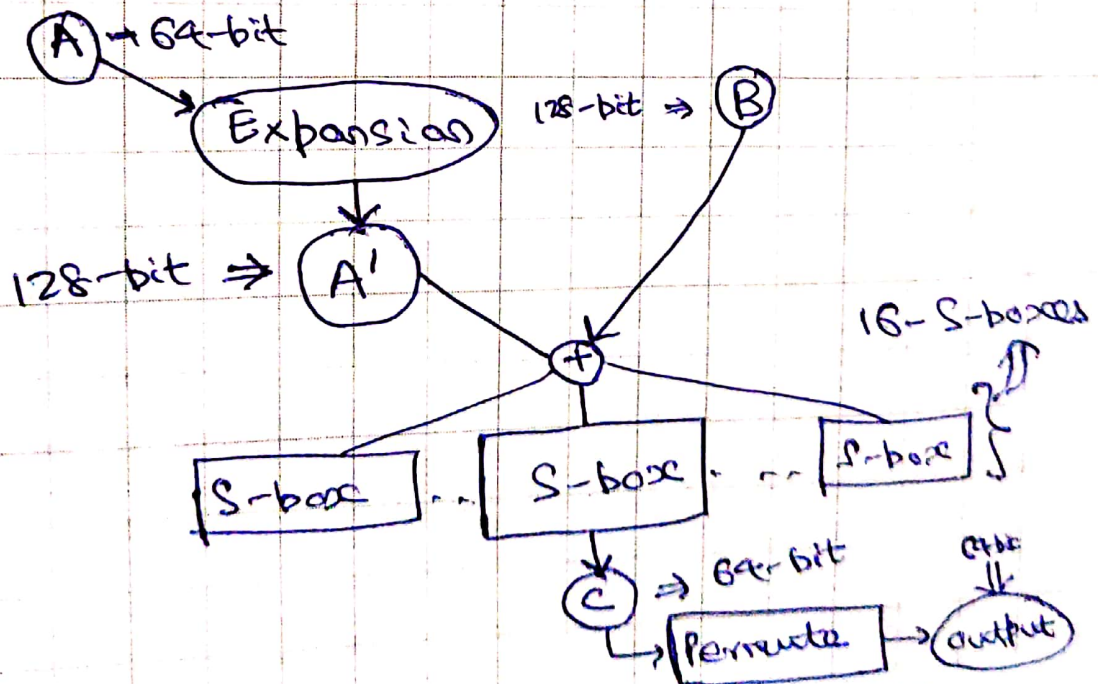 A → 64-bit
Expansion
128-bit ⇒ B
128-bit ⇒ A'
+
16- S-boxes
S-box .. S-box . .. S-box
C ⇒ 64-bit
Permute → output